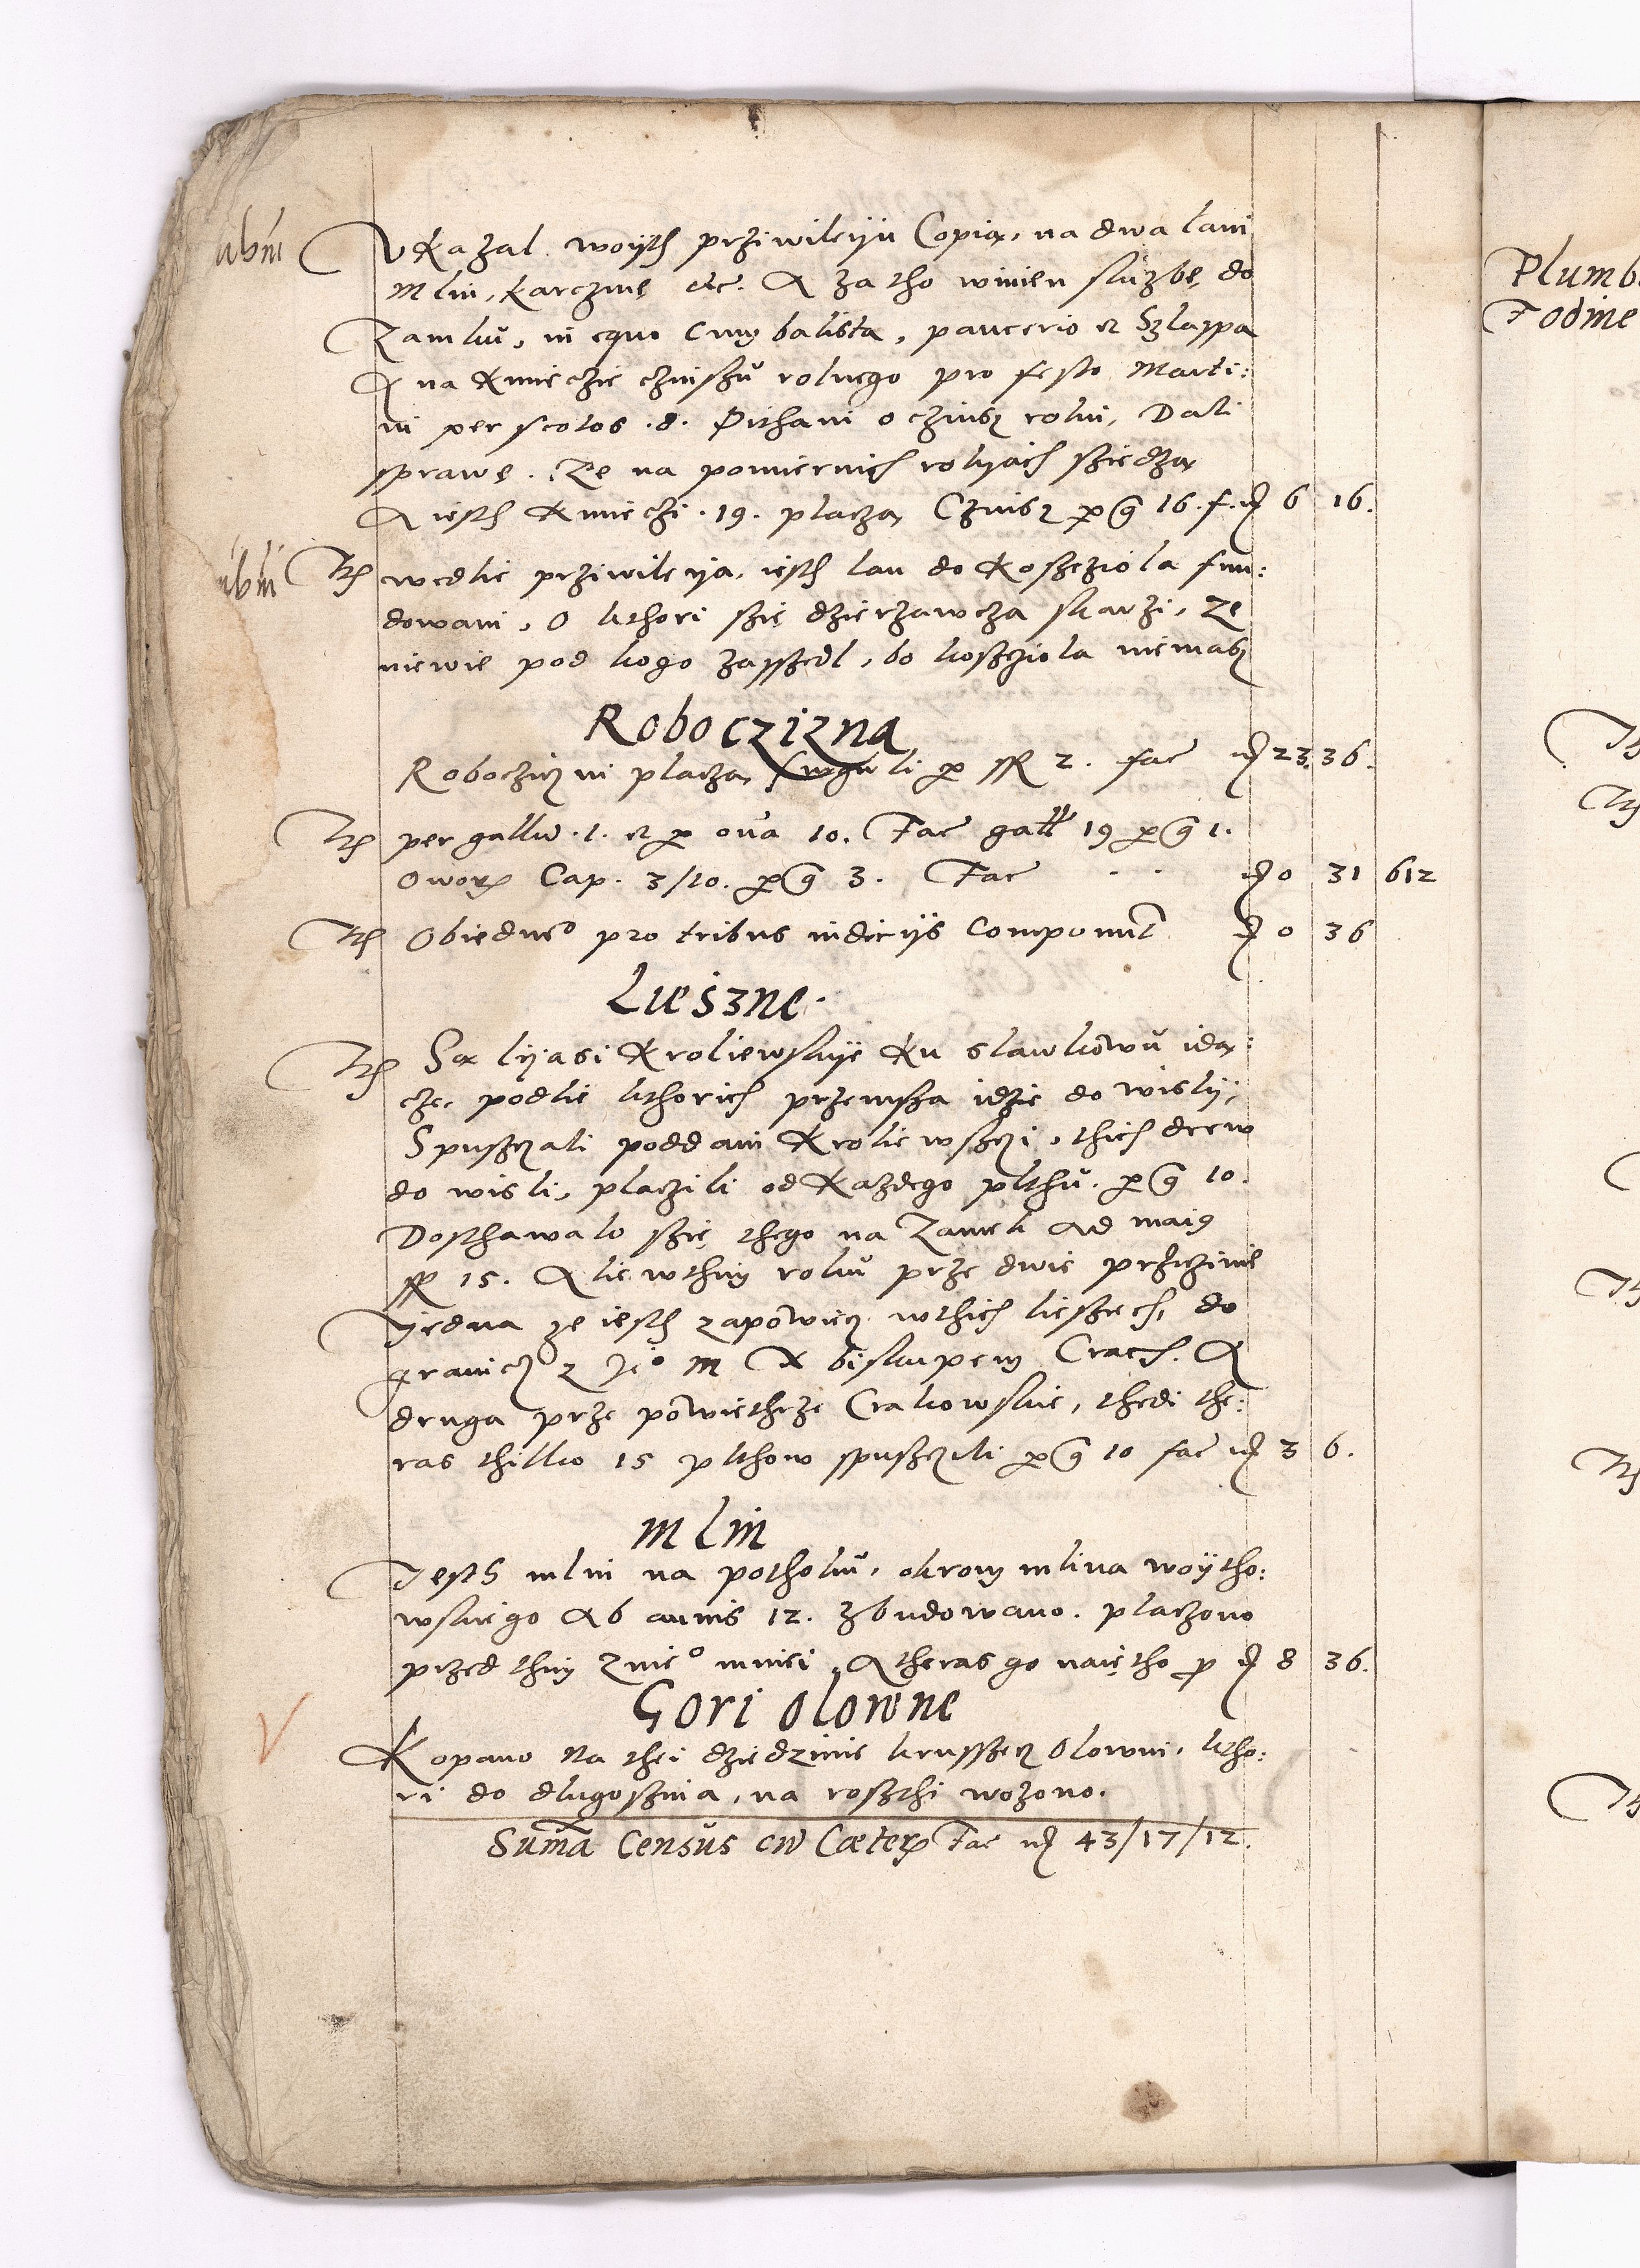 Ukazal woyth prziwileyu Copią, na dwa lani
Mlin, karczmę etc. A za tho winien służbę do
Zamku, in equo cum balista, pancerio et Szlappa
A na Kmieczie czinszu rolnego pro festo Marti:
ni per scotos .8. Pithani o czinsz rolni, Dali
sprawę. Ze na pomiernich rolyach sziedzą
A iesth Kmieczi .19. placzą Czinsz per g 16. f. m 6 16.
Ith wedlie prziwileya, iesth lan do Koszcziola fun:
dowani, O kthori szię dzierzawcza skarzi, ze
niewie pod kogo zasszedl, bo koszcziola niemasz
Roboczizna
Roboczizni placzą singuli per 2. fac m 23. 36.
Ith per gallu .1. et per ova 10. Fac gall 19 per g 1.
Oworum Cap. 3/10. per g 3. Fac . . m 0 31 6 12
Ith Obiedne pro tribus iudiciys componunt m 0 36
Lieszne.
Ith Są lyasi Kroliewskye Ku slawkowu idą:
cze, podlie kthorich przemsza idzie do wisly,
Spuszczali poddani Kroliewszczi, thich drew
do wisli, placzili od Kazdego plthu. per g 10.
Dosthawalo szię thego na Zamek Ad maius
15. Alie wthim roku prze dwie prziczinie
yedna ze iesth zapowiecz wthich lieszech, do
granicz z Je° M X biskupem Crach. A
druga prze powiethrze Crakowskie, thedi the:
ras thilko 15 plthow spuszczili per g 10 fac m 3 6.
Mlin
Jesth mlin na pothoku, okrom mlina woytho:
wskiego Ab annis 12. zbudowano. placzono
przed thim znie° mniei, A theras go naiętho p m 8 36.
Gori olowne
Kopano Na thei dziedzinie krusszecz Olowni, ktho:
ri do dlugoszina, na roszthi wozono.
Suma Census cum Cæterum Fac m 43/17/12.
Plumb
Fodine